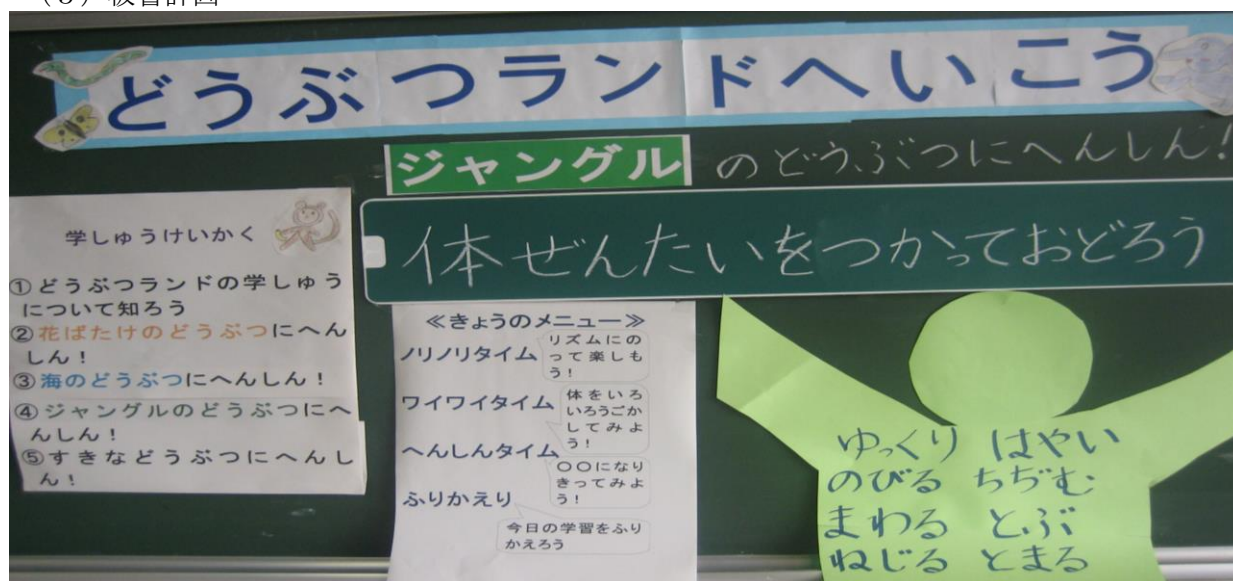 (3)板書計画
どうぶつランドへいこう
ジャングルのどうぶつにへんしん!
体ぜんたいをつかっておどろう
学しゅうけいかく
①どうぶつランドの学しゅう
について知ろう
②花ばたけのどうぶつにへん
しん!
③海のどうぶつにへんしん!
④ジャングルのどうぶつにへ
んしん!
⑤すきなどうぶつにへんし
ん!
≪きょうのメニュー≫
ノリノリタイム
リズムにの
って楽しも
う!
ワイワイタイム
体をいろ
いろうごか
してみよ
う!
へんしんタイム
○○になり
きってみよ
う!
ふりかえり
今日の学習をふり
かえろう
ゆっくり はやい
のびる ちぢむ
まわる とぶ
ねじる とまる